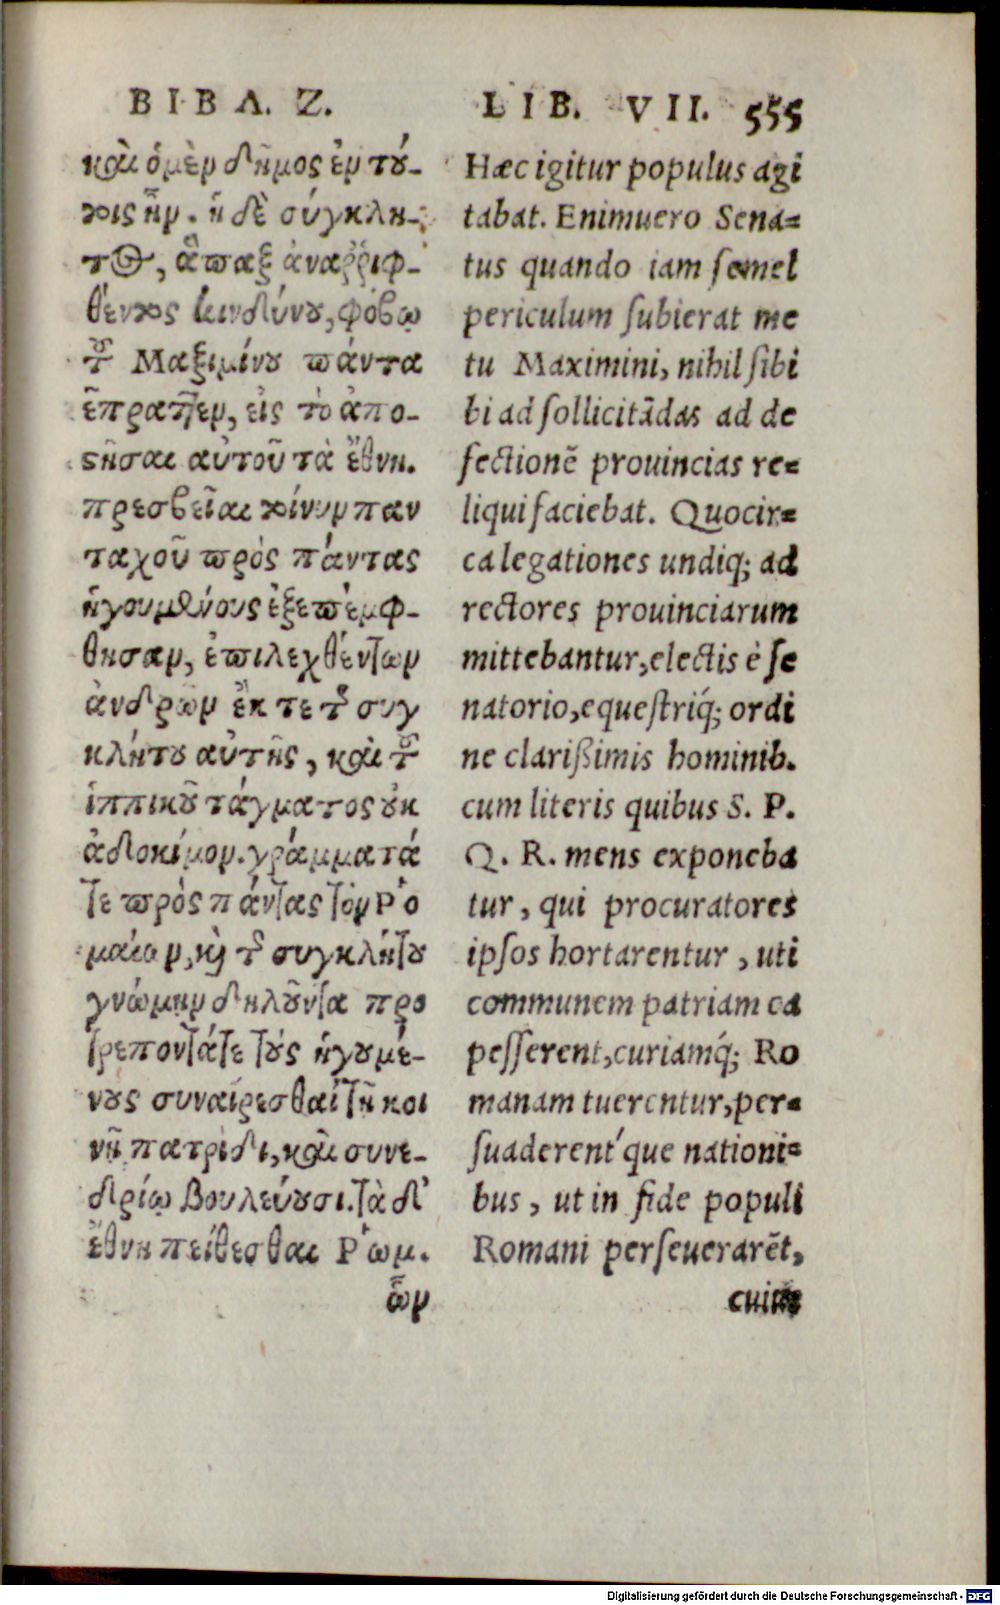 ΒΙΒΛ. Ζ.
καὶ ὁ μὲν δῆμος ἐν τού-
τοις ἦν. ἡ δὲ σύγκλη-
τος, ἅπαξ ἀναῤῥιφ-
θέντος κινδύνου, φόβῳ
τοῦ Μαξιμίνου πάντα
ἔπραττεν, εἰς τὸ ἀπο-
στῆσαι αὐτοῦ τὰ ἔθνη.
πρεσβεῖαι τοίνυν παν
ταχοῦ πρὸς πάντας
ἡγουμένους ἐξεπέμφ-
θησαν, ἐπιλεχθέντων
ἀνδρῶν ἔκ τε τῆς συγ
κλήτου αὐτῆς, καὶ τοῦ
ἱππικοῦ τάγματος οὐκ
ἀδοκίμων. γράμματά
τε πρὸς πάντας τὴν Ῥο
μαίων, καὶ τῆς συγκλήτου
γνώμην δηλοῦντα προ
τρεποντάτε τοὺς ἡγουμέ-
νους συναίρεσθαί τῇ κοι
νῇ πατρίδι, καὶ συνε-
δρίῳ βουλεύουσι. τὰ δ'
ἔθνη πείθεσθαι Ῥωμ.
ὧν
LIB. VII. 555
Hæc igitur populus agi
tabat. Enimuero Sena=
tus quando iam semel
periculum subierat me
tu Maximini, nihil sibi
bi ad sollicitādas ad de
fectionē prouincias re=
liqui faciebat. Quocir=
ca legationes undiq; ad
rectores prouinciarum
mittebantur, electis è se
natorio, equestriq́; ordi
ne clarißimis hominib.
cum literis quibus S. P.
Q. R. mens exponeba
tur, qui procuratores
ipsos hortarentur, uti
communem patriam ca
pesserent, curiamq́; Ro
manam tuerentur, per=
suaderent́ que nationi=
bus, ut in fide populi
Romani perseuerarēt,
Digitalisierung gefördert durch die Deutsche Forschungsgemeinschaft - DFG